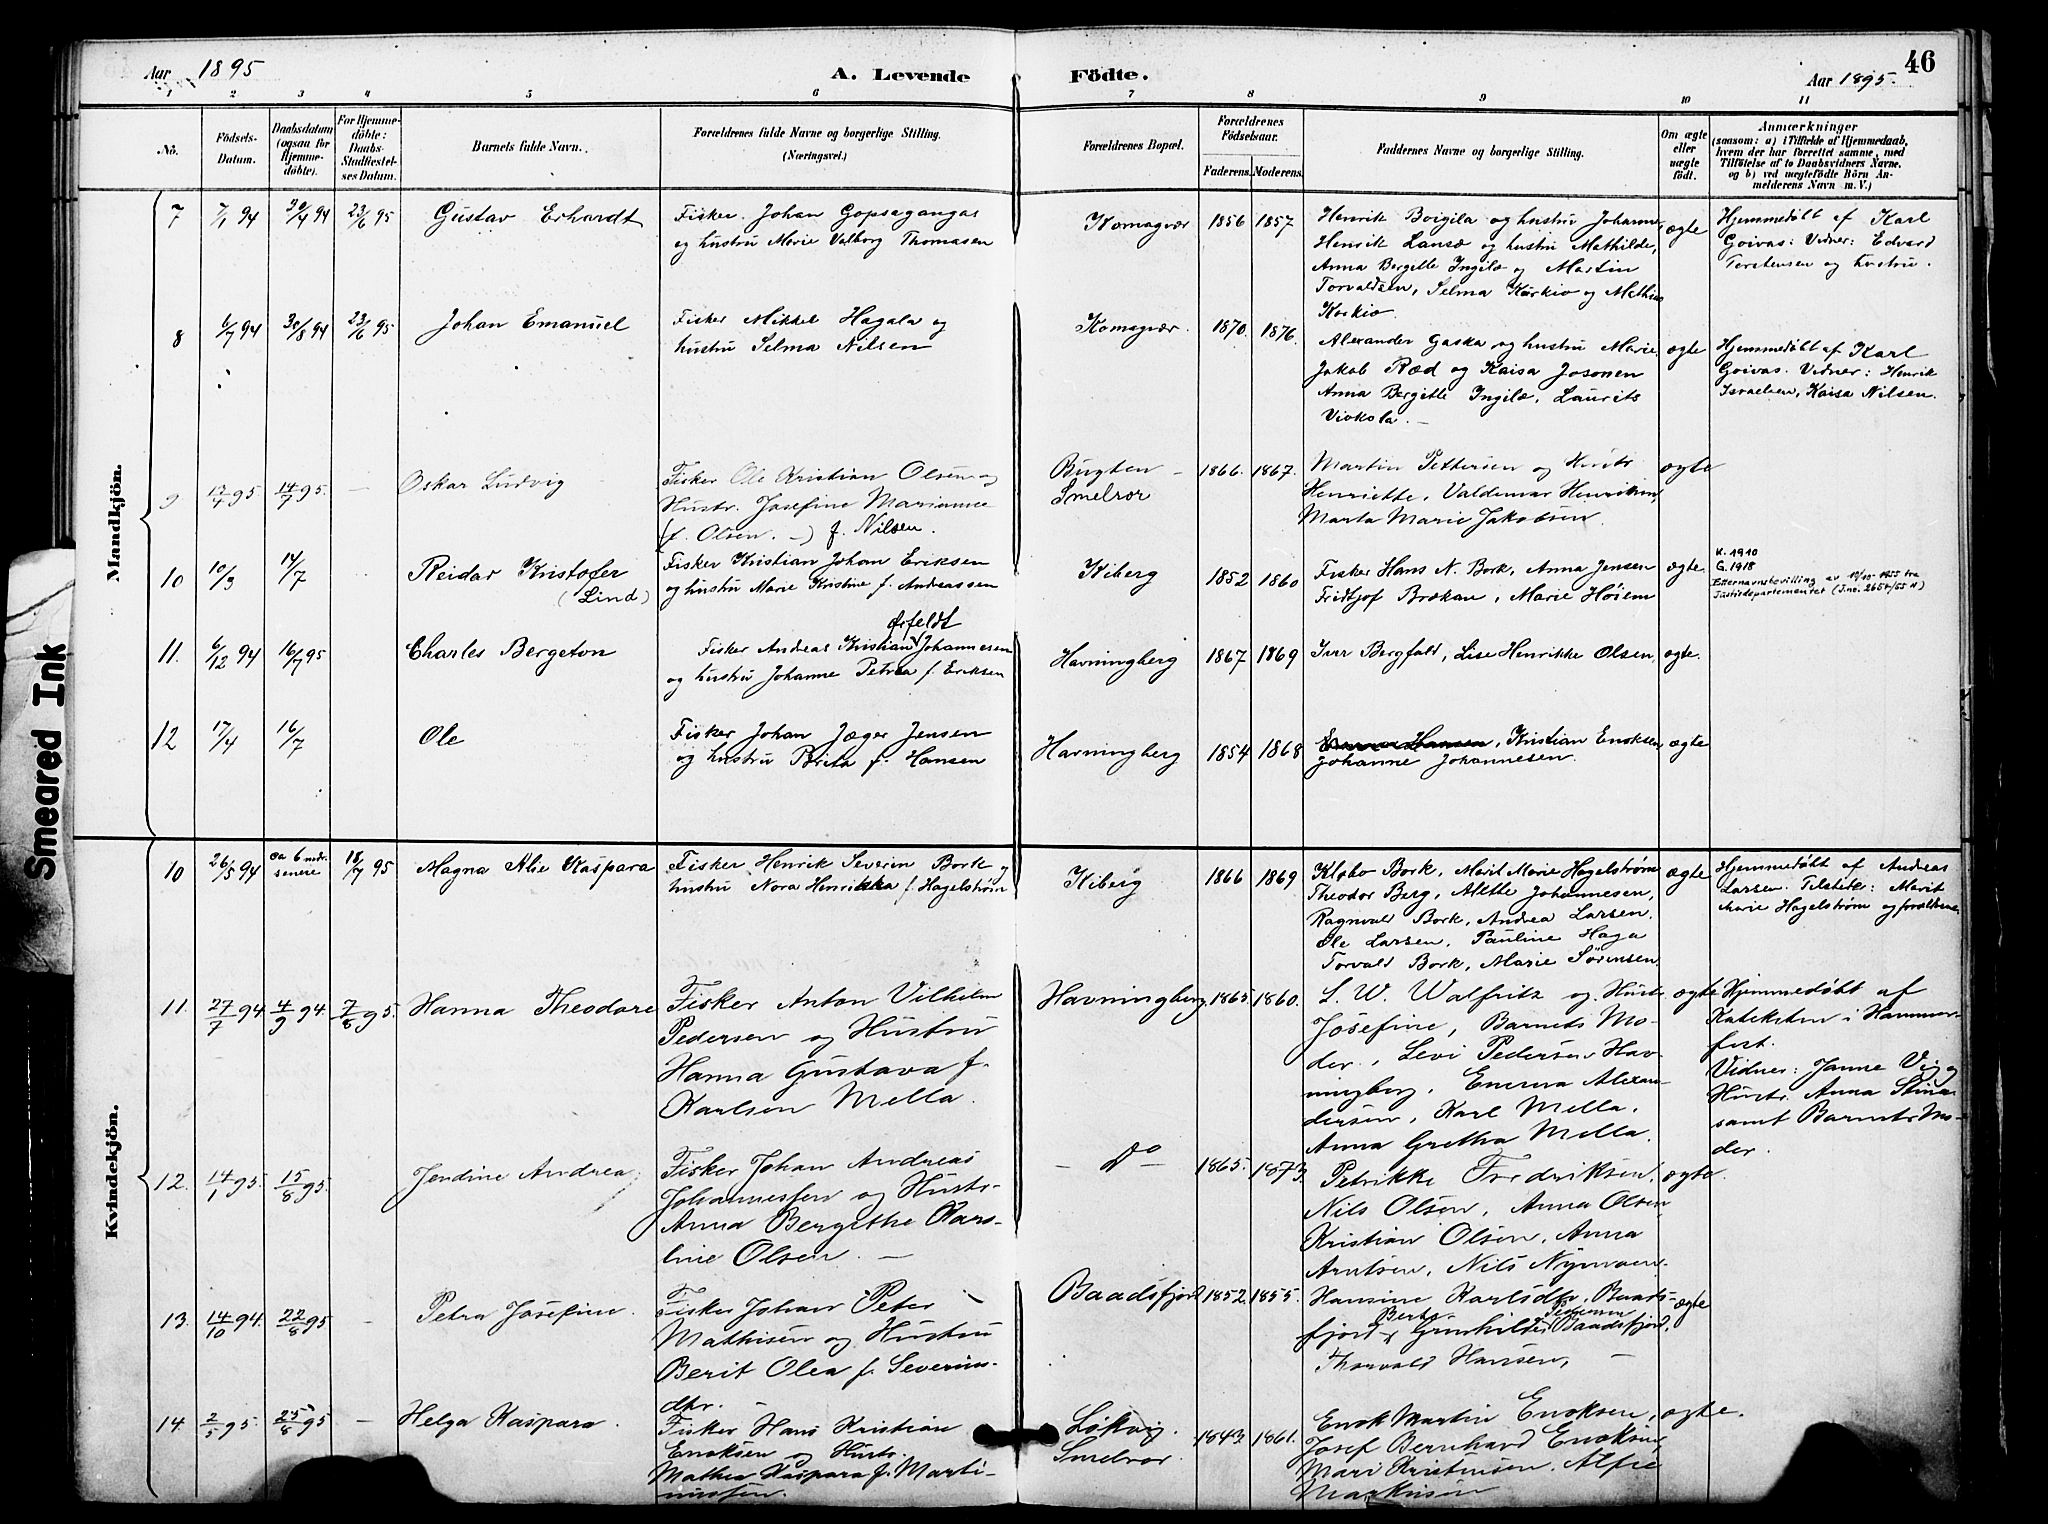 Aar 1895
A. Levende Födte.
Aar 1895.
46
1 2 3 4 5 6 7 8 9 10 11
No.
Födsels-Datum.
Daabsdatum (ogsaa for Hjemme-döbte).
For Hjemme-döbte: Daabs-Stadfæstel-ses Datum.
Barnets fulde Navn.
Forældrenes fulde Navne og borgerlige Stilling.
(Næringsvei.)
Forældrenes Bopæl.
Forældrenes Födselsaar.
Faderens. Moderens.
Faddernes Navne og borgerlige Stilling.
Om ægte eller uægte födt.
Anmærkninger
(saasom: a) i Tilfælde af Hjemmedaab,
hvem der har forrettet samme, med
Tilföielse af to Daabsvidners Navne,
og b) ved uægtefödte Börn An-
melderens Navn m. V.)
Mandkjön.
7 7/1 94 29/4 94 23/6 95 Gustav Erhardt
Fisker Johan Gopsagangas
og hustru Marie Valborg Thomasen
Komagvær 1856 1857
Henrik Boigila og hustru Johanne,
Henrik Lansæ og hustru Mathilde,
Anna Bergitte Ingilæ og Martin
Torvaldsen, Selma Karkio og Mathias
Karkio.
ægte
Hjemmedøbt af Karl
Goivas: Vidner: Edvard
Torstensen og hustru.
8 6/7 94 30/8 94 23/6 95 Johan Emanuel
Fisker Mikkel Hagala og
hustru Selma Nilsen
Komagvær. 1870. 1876.
Alexander Gaska og hustru Marie,
Jakob Ræd og Kaisa Josonen
Anna Bergitte Ingilæ, Laurits
Viokola.
ægte
Hjemmedøbt af Karl
Goivas. Vidner: Henrik
Israelsen, Kaisa Nilsen.
9 17/4 95 14/7 95. — Oskar Ludvig
Fisker Ole Kristian Olsen og
Hustr. Josefine Marianne
(f. Olsen. —) f. Nilsen.
Bugten –
Smelror
1866. 1867.
Martin Pettersen og Hustr
Henriette, Valdemar Henriksen,
Marta Marie Jakobsen.
ægte
10 10/3 14/7 Reidar Kristofer
(Lind)
Fisker Kristian Johan Eriksen
og hustru Marie Kristine f. Andreassen
Kiberg 1852 1860
Fisker Hans N. Bork, Anna Jensen
Fridtjof Brækan, Marie Høiem
ægte.
K. 1910
G. 1918
Etternavnsbevilling av 1955 fra
Justisdepartementet
11. 6/12 94 16/7 95 Charles Bergeton
Ørfeldt
Fisker Andreas Kristian Johannessen
og hustru Johanne Petrea f. Eriksen
Havningberg 1867 1869
Ivar Bergfald, Lise Henrikke Olsen,
ægte.
12 17/4 16/7 Ole
Fisker Johan Jæger Jensen
og hustru Brita f. Hansen
Havningberg 1854 1868
Hansen, Kristian Enoksen,
Johanne Johannesen.
ægte
Kvindekjön.
10 26/5 94 ca 6 mdr. senere 18/7 95 Magna Alie Kaspara
Fisker Henrik Severin Bork og
hustru Nora Henrikka f. Hagelstrøm
Kiberg 1866 1869
Kløbo Bork, Marit Marie Hagelstrøm
Theodor Berg, Alette Johannesen,
Ragnvald Bork, Andrea Larsen.
Ole Larsen, Pauline Haga
Torvald Bork, Marie Sørensen.
ægte
Hjemmedøbt af Andreas
Larsen. Tilstede: Marit
Marie Hagelstrøm og forældrene.
11. 27/7 94 4/9 94. 7/8 95. Hanna Theodore
Fisker Anton Vilhelm
Pedersen og Hustru
Hanna Gustava f.
Karlsen Mella.
Havningberg. 1865. 1860.
L. W. Walfritz og Hustr
Josefine, Barnets Mo-
der, Levi Pedersen Hav-
ningberg, Emma Alexan-
dersen, Karl Mella,
Anna Gretha Mella.
ægte
Hjemmedøbt af
Kateketen i Hammer-
fest.
Vidner: Janne Vig og
Hustr. Anna Stina
samt Barnets Mo-
der.
12. 14/1 95. 15/8 95. Jendine Andrea
Fisker Johan Andreas
Johannessen og Hustr.
Anna Bergithe Karo-
line Olsen. —
— Do — 1865. 1873.
Petrikke Fredriksen,
Nils Olsen, Anna Olsen,
Kristian Olsen, Anna
Arntsen, Nils Nymoen.
ægte.
13. 14/10 94. 22/8 95 – Petra Josefine.
Fisker Johan Peter
Mathisen og Hustru
Berit Olea f. Severins-
dtr. –
Baadsfjord 1852. 1855.
Hansine Karlsdtr. Baads-
fjord, Berte Gunhilde Pedersen Baadsfjord,
Thorvald Hansen, —
ægte
14. 2/5 95. 25/8 95 – Helga Kaspara.
Fisker Hans Kristian
Enoksen og Hustr.
Mathea Kaspara f. Marti-
nussen.
Løkvig.
Smelror.
1843. 1861.
Enok Martin Enoksen,
Josef Bernhard Enoksen,
Mari Kristensen. Alfie
Markusen
ægte.
Smeared Ink